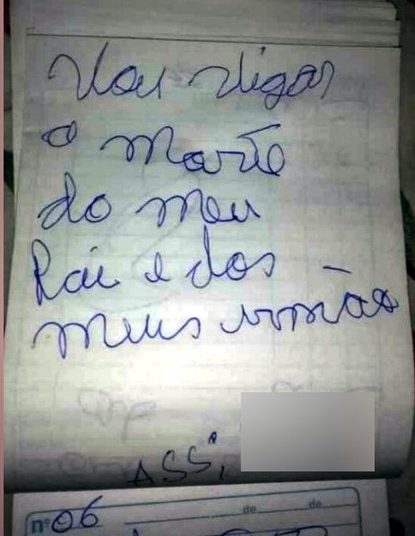 Vou vigar
a morte
do meu
Pai e dos
meus irmão
ASS:
nº 06
de de